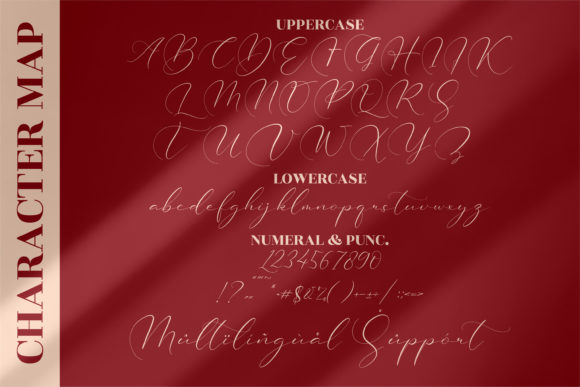 CHARACTER MAP
UPPERCASE
A B C D E F G H I J K
L M N O P Q R S
T U V W X Y Z
LOWERCASE
abcdefghijklmnopqrstuvwxyz
NUMERAL & PUNC.
1234567890
Mültilingùål Sůppórt